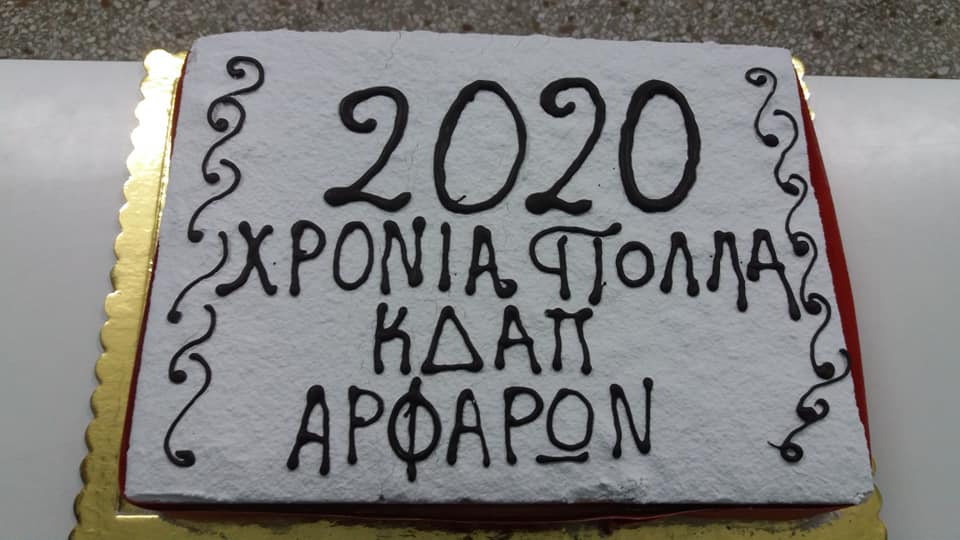 2020
ΧΡΟΝΙΑ ΠΟΛΛΑ
ΚΔΑΠ
ΑΡΦΑΡΩΝ